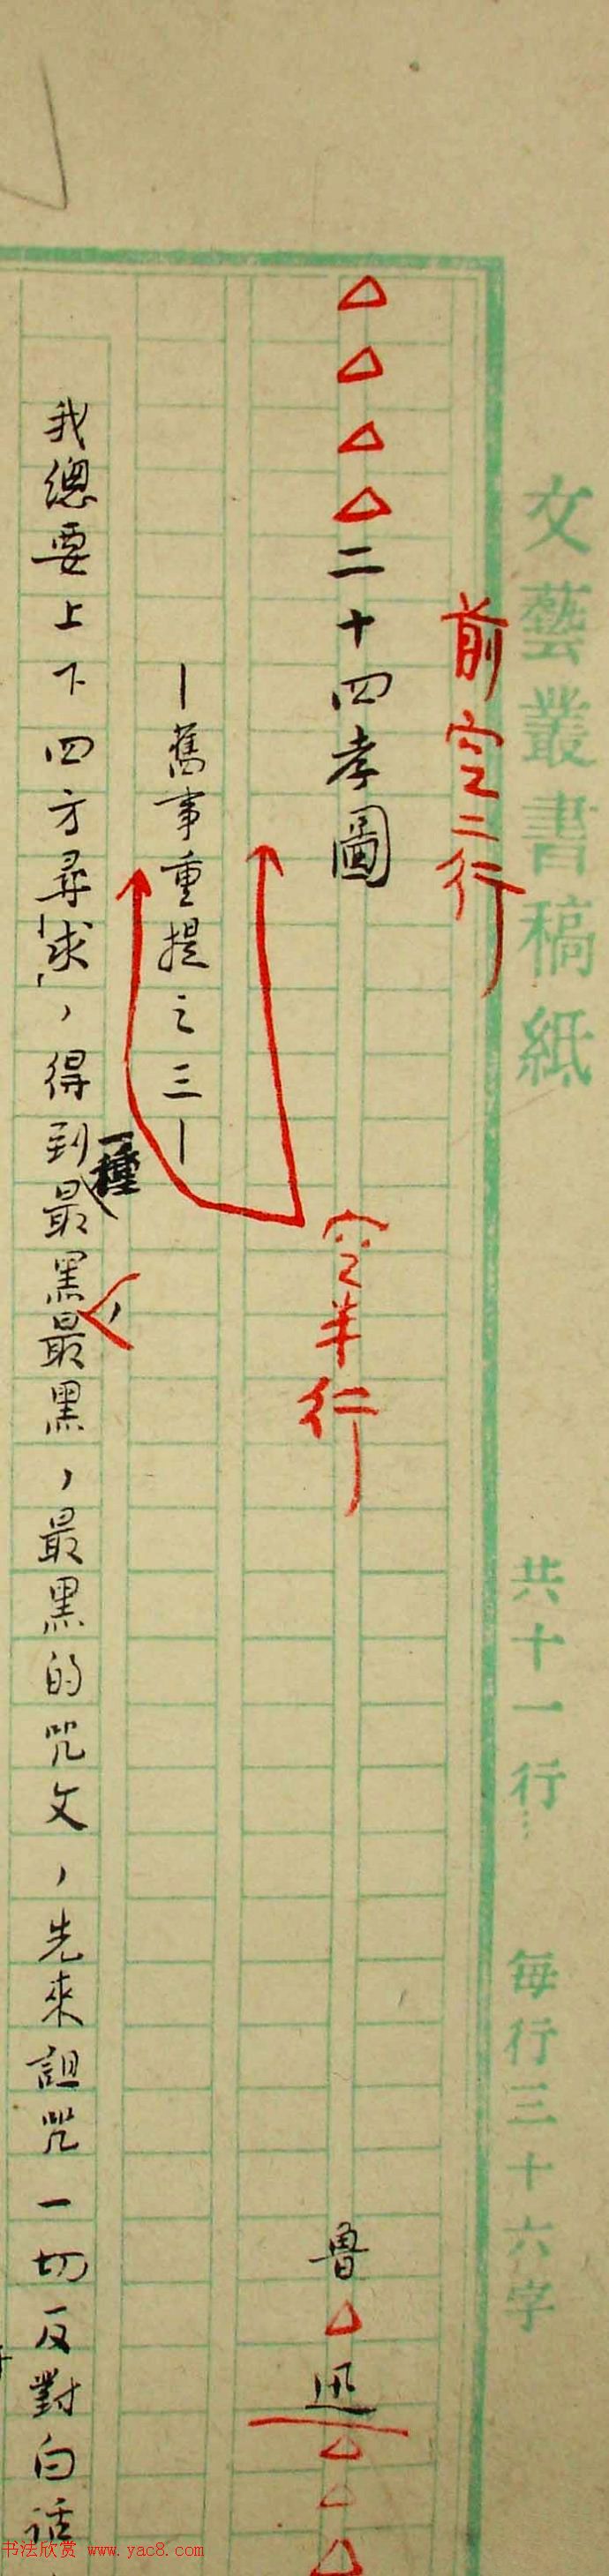 文藝叢書稿紙
共十一行
每行三十六字
前空二行
二十四孝圖
魯迅
空半行
—舊事重提之三—
一種
我總要上下四方尋求，得到最黑最黑，最黑的咒文，先來詛咒一切反對白話
书法欣赏 www.yac8.com